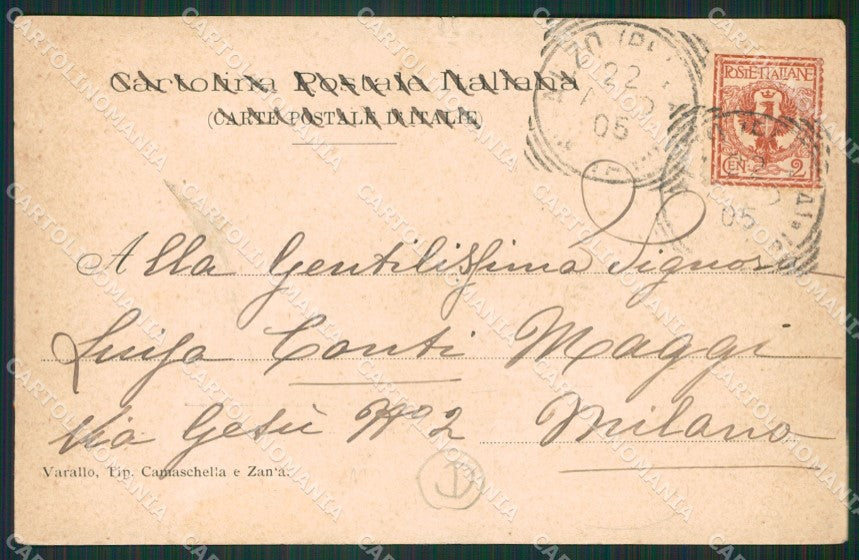 Cartolina Postale Italiana
(CARTE POSTALE D'ITALIE)
22
05
POSTE ITALIANE
CEN. 2
05
Alla Gentilissima Signora
Luisa Conti Maggi
Via Gesù No 2 Milano
Varallo, Tip. Camaschella e Zanfa.
CARTOLINOMANIA